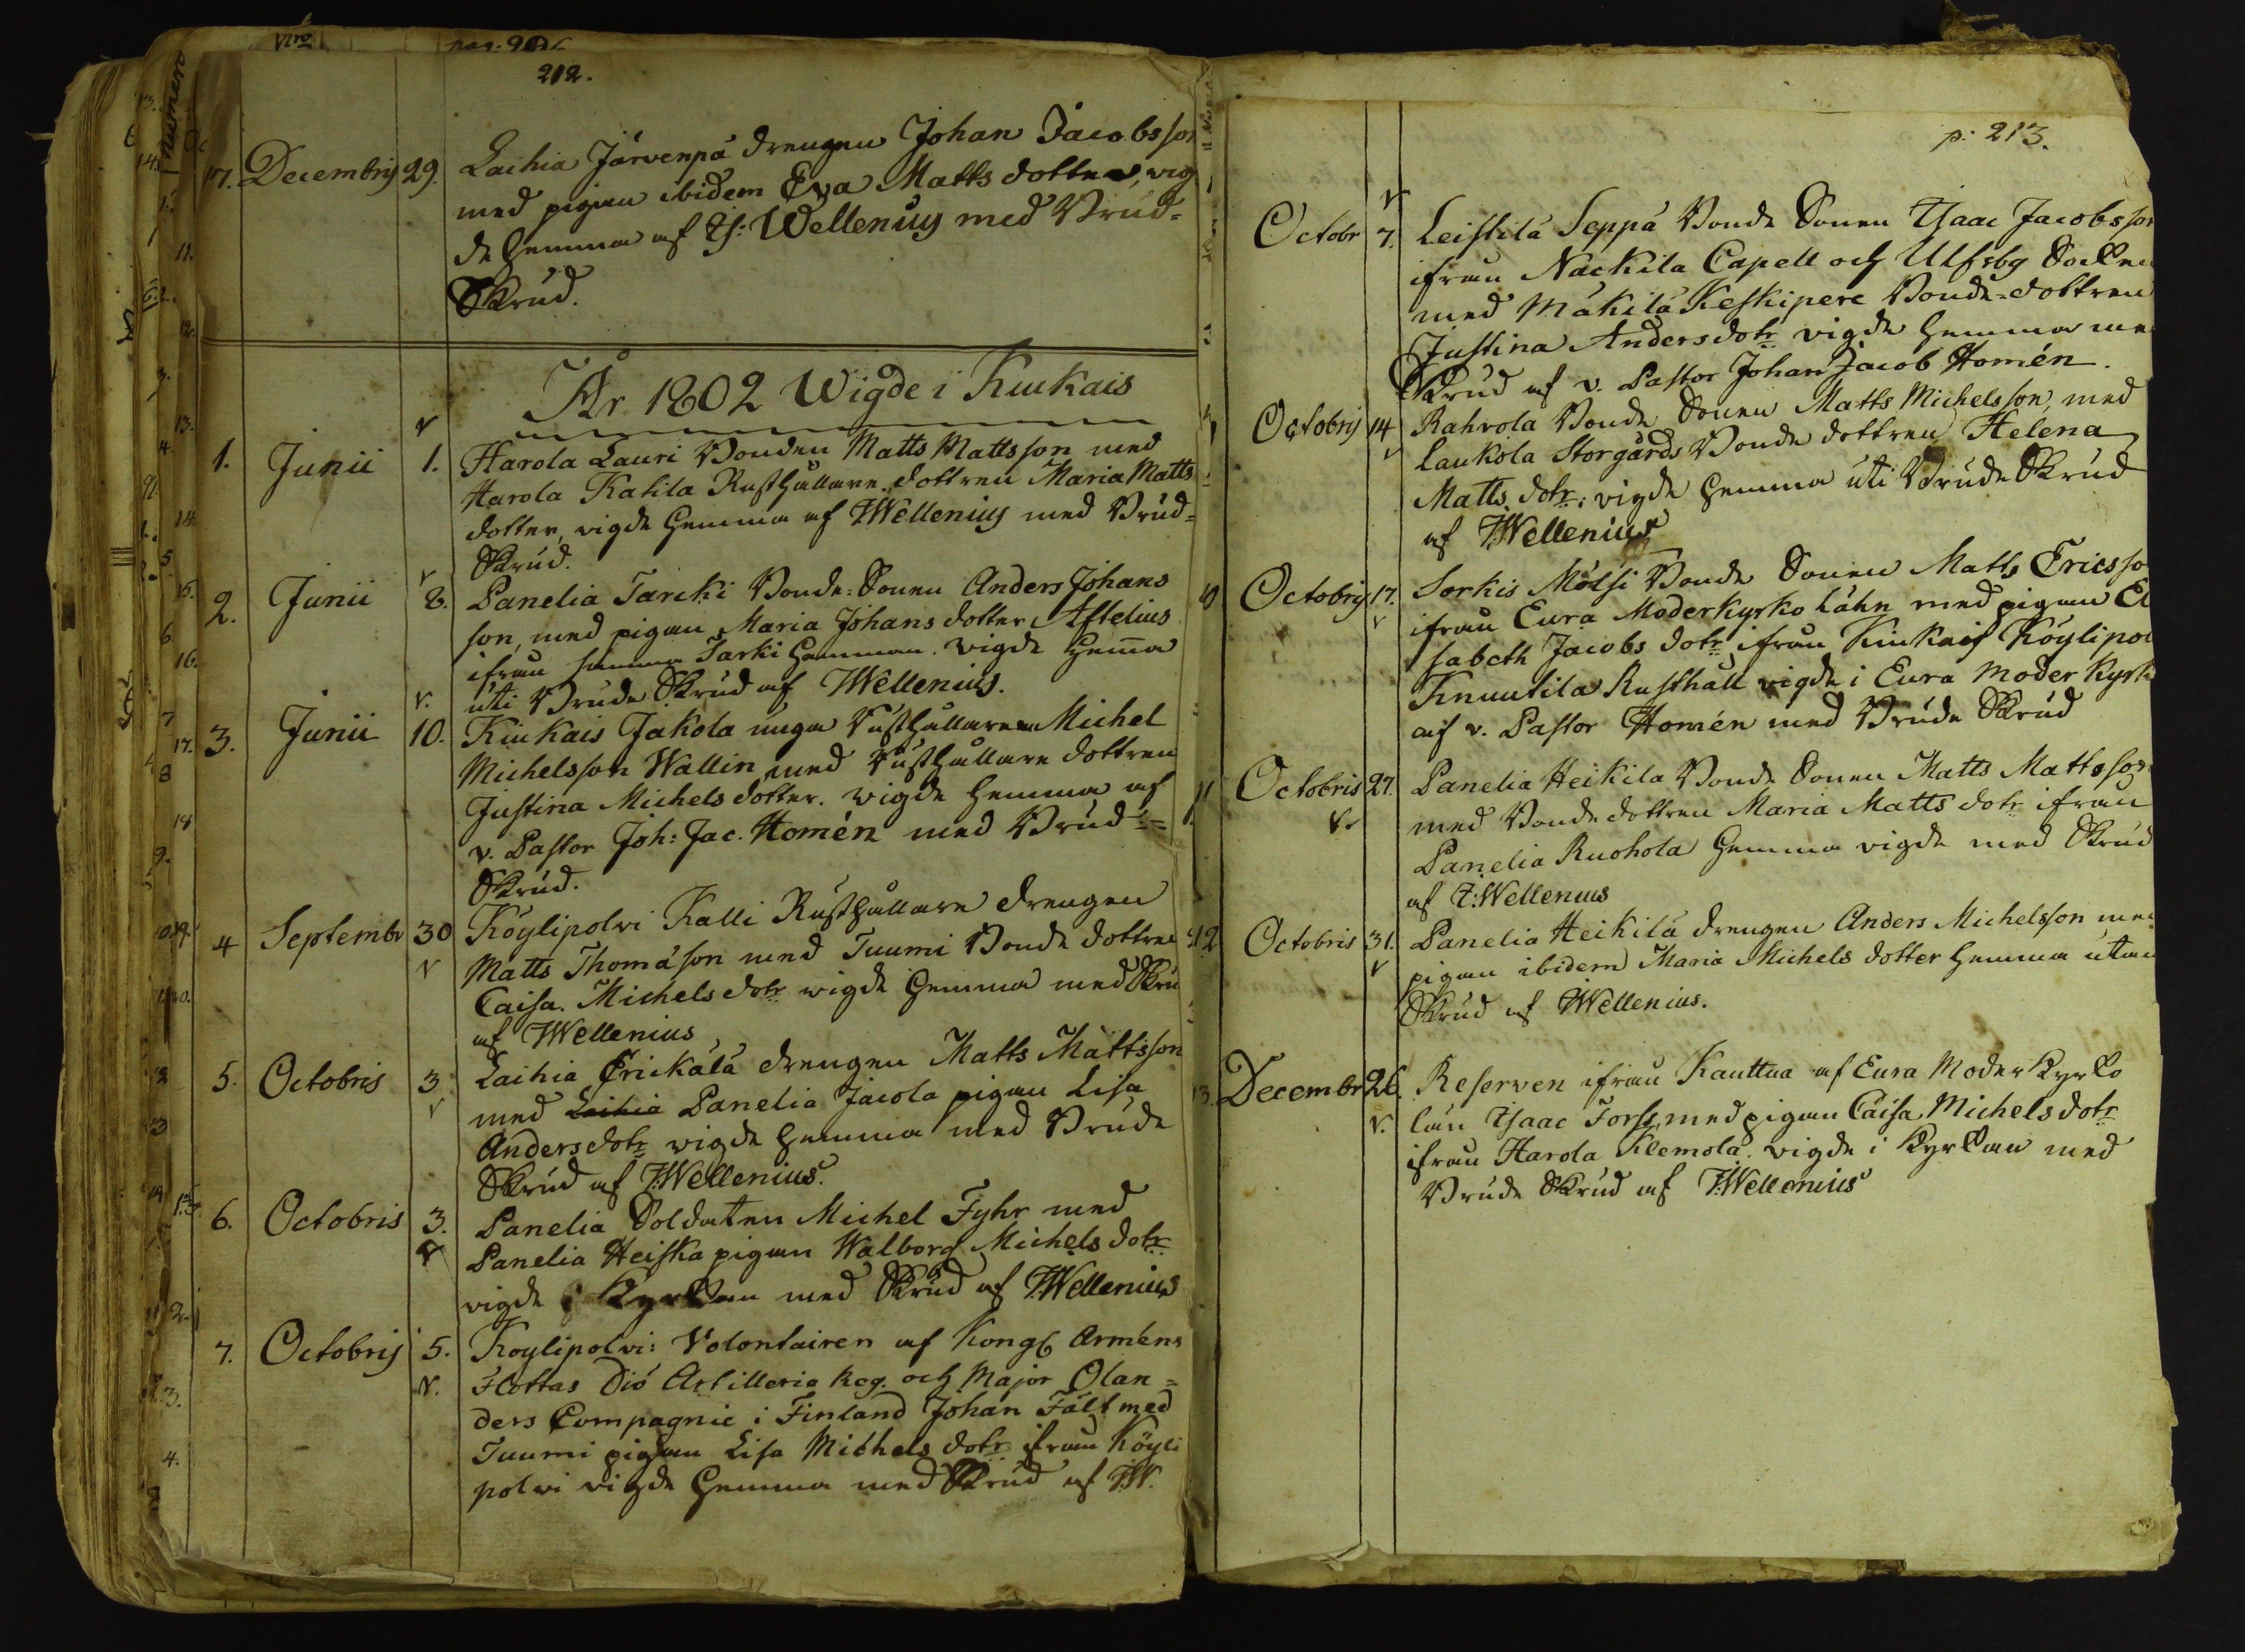 212.
17. Decembris 29. Laihia Järvenpä drengen Johan Jacobsson
med pigan ibidem Eva Matts dotter, vig
de hemma af Is: Wellenius med Brud=
Skrud.
År 1802 Wigde i Kiukais
1. Junii 1. Harola Lauri Bonden Matts Mattsson med
Harola Katila Rusthållare dottren Maria Matts
dotter, vigde hemma af I:Wellenius med Brud=
Skrud.
2. Junii 8. Panelia Tarcki Bonde=Sonen Anders Johans
son, med pigan Maria Johans dotter Aftelius
ifrån samma Tarki hemman. vigde hema
uti Brude Skrud af I:Wellenius.
3. Junii 10. Kiukais Jakola unga Rusthållaren Michel
Michelsson Wallin med Rusthållare dottren
Justina Michels dotter. vigde hemma af
v. Pastor Joh: Jac. Homén med Brud=
Skrud.
4 Septembr 30 Köylipolvi Kalli Rusthållare drengen
Matts Thomäson med Tuumi Bonde dottren
Caisa Michels dotr vigde hemma med Skru
af I:Wellenius
5. Octobris 3 Laihia Erickälä drengen Matts Mattsson
med Laihia Panelia Jacola pigan Lisa
Andersdotr vigde hemma med Brude
Skrud af I:Wellenius.
6. Octobris 3. Panelia Soldaten Michel Fyhr med
Panelia Heiska pigan Walborg Michels dotr
vigde i Kyrkan med Skrud af I:Wellenius
7. Octobris 5. Koylipolvi: Volontairen af Kongl Arméns
Flottas Dió Artilleria Reg. och Major Olan=
ders Compagnie i Finland Johan Fält med
Tuumi pigan Lisa Michels dotr ifrån Köyli
polvi vigde hemma med Skrud af I:W.
p: 213.
Octobr 7. Leistilä Seppä Bonde Sonen Isaac Jacobsson
ifrån Nackila Capell och Ulfsby Socken
med Mäkilä Keskipere Bonde=dottren
Justina Andersdotr vigde hemma me
Skrud af v. Pastor Johan Jacob Homén.
Octobris 14 Rahvola Bonde Sonen Matts Michelsson, med
Laukola Storgårds Bonde dottren Helena
Matts dotr: vigde hemma uti Brude Skrud
af I:Wellenius
Octobris 17. Sorkis Mölsi Bonde Sonen Matts Ericsso
ifrån Eura Moderkyrko Lähn med pigan El
sabeth Jacobs dotr ifrån Kiukais Köylipol
Knuutila Rusthåll vigde i Eura Moder Kyrk
af v. Pastor Homén med Brude Skrud
11 Octobris 27. Panelia Heikila Bonde Sonen Matts Mattsson
med Bonde dottren Maria Matts dotr ifrån
Panelia Ruohola hemma vigde med Skrud
af I:Wellenius
12 Octobris 31. Panelia Heikilä drengen Anders Michelsson med
pigan ibidem Maria Michels dotter hemma utan
Skrud af I:Wellenius.
13. Decembr 26 Reserven ifrån Kauttua af Eura Moder Kyrko
län Isaac Forss, med pigan Caisa Michels dotr
ifrån Harola Klemola. vigde i Kyrkan med
Brude Skrud af I:Wellenius